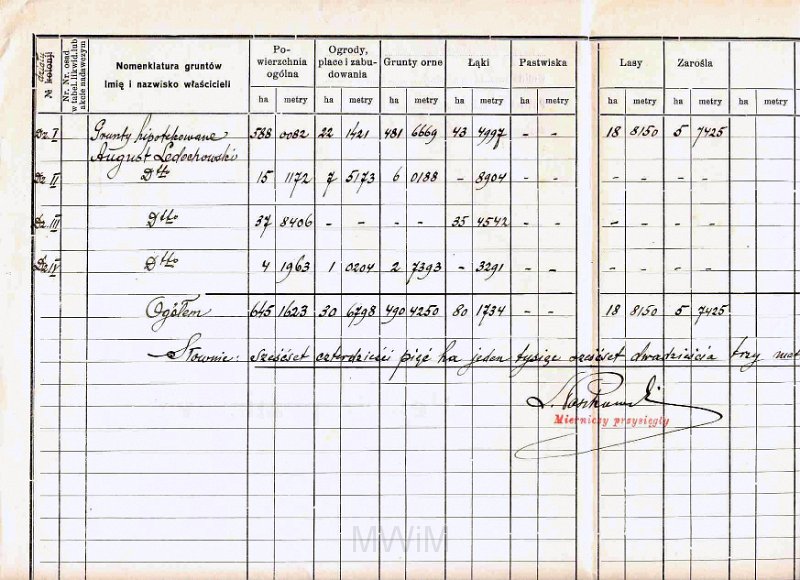 № działy kolonji
Nr. Nr. osad w tabel. likwid. lub akcie nadawczym
Nomenklatura gruntów
Imię i nazwisko właścicieli
Po-
wierzchnia
ogólna
Ogrody,
place i zabu-
dowania
Grunty orne
Łąki
Pastwiska
Lasy
Zarośla
ha metry ha metry ha metry ha metry ha metry ha metry ha metry ha metry
Dz I Grunty hipotekowane 588 0082 22 1421 481 6669 43 4997 - - 18 8150 5 7425
August Ledochowski
Dz II Dtto 15 1172 7 5173 6 0188 - 8904 - - - - - -
Dz III Dtto 37 8406 - - - - 35 4542 - - - - - -
Dz IV Dtto 4 1963 1 0204 2 7393 - 3291 - - - - - -
Ogółem 645 1623 30 6798 490 4250 80 1734 18 8150 5 7425
Słownie: sześćset czterdzieści pięć ha jeden tysiąc sześćset dwadzieścia trzy met
Mierniczy przysięgły
MWiM